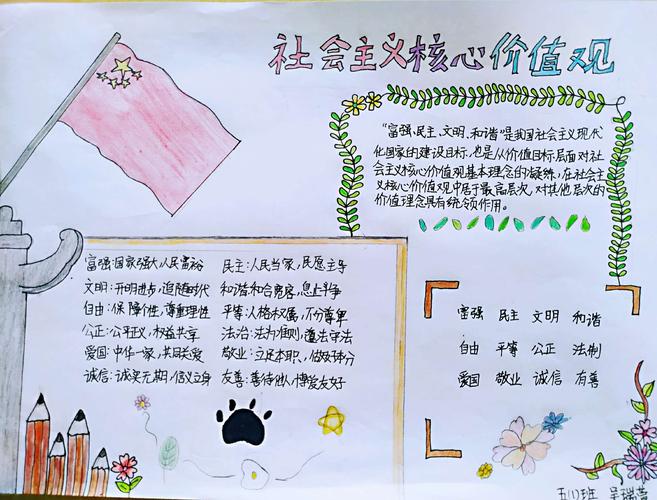 社会主义核心价值观
"富强、民主、文明、和谐"是我国社会主义现代
化国家的建设目标,也是从价值目标层面对社
会主义核心价值观基本理念的凝练,在社会主
义核心价值观中居于最高层次,对其他层次的
价值理念具有统领作用。
富强:国家强大,人民富裕 民主:人民当家,民愿主导
文明:开明进步,追随时代 和谐:和合宽容,息止斗争
自由:保障个性,尊重理性 平等:人格权属,不分尊卑
公正:公平正义,权益共享 法治:法为准则,遵法守法
爱国:中华一家,共同关爱 敬业:立足本职,做好本分
诚信:诚实无期,信义立身 友善:善待他人,博爱友好
富强 民主 文明 和谐
自由 平等 公正 法制
爱国 敬业 诚信 有善
五(1)班 吴瑞